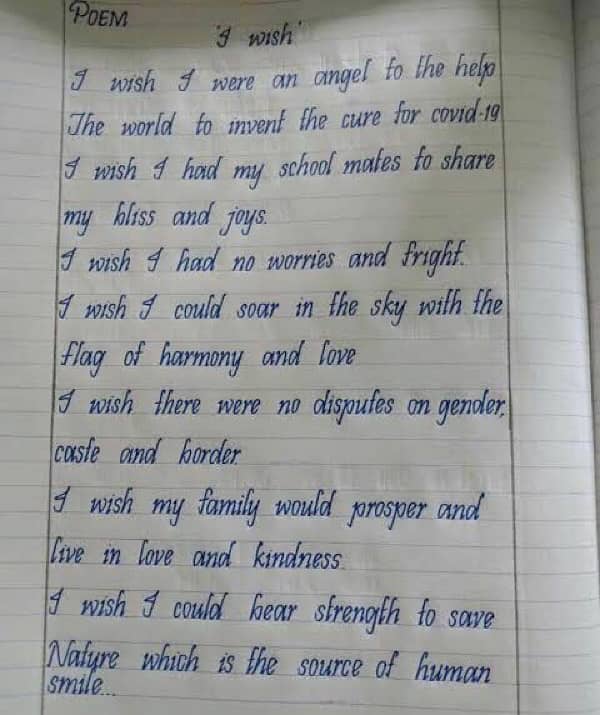 POEM
'I wish'
I wish I were an angel to the help
The world to invent the cure for covid-19
I wish I had my school mates to share
my bliss and joys.
I wish I had no worries and fright.
I wish I could soar in the sky with the
flag of harmony and love
I wish there were no disputes on gender,
caste and border.
I wish my family would prosper and
live in love and kindness.
I wish I could bear strength to save
Nature which is the source of human
smile...